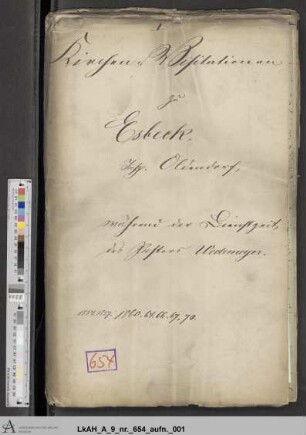 Kirchen Visitationen
zu
Esbeck.
Insp. Oldendorf,
während der Dienstzeit
des Pastors Wedemeyer.
654
LkAH_A_9_nr._654_aufn._001